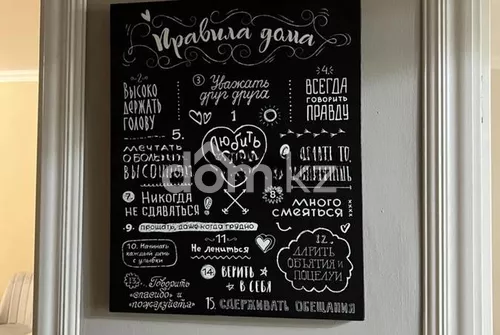 Правила дома
1
Любить
2.
Высоко
держать
голову
3
Уважать
друг друга
4.
ВСЕГДА
говорить
ПРАВДУ
5.
Мечтать
о большом,
высоком
делать то,
7.
Никогда
не сдаваться!
8.
много
смеяться
9.
прощать, даже когда трудно
10. Начинать
каждый день
с улыбки
11
Не лениться
12.
Дарить
объятия и
поцелуи
13.
Говорить
«спасибо» и
«пожалуйста»
14
Верить
в себя
15. сдерживать обещания
dom.kz